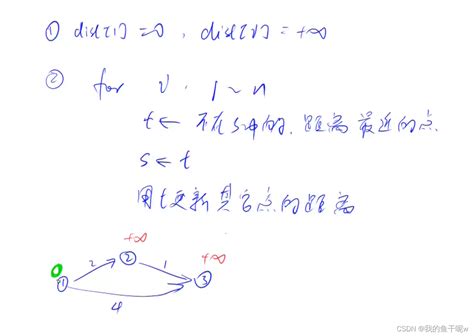 ① dist[1] = 0, dist[v] = +∞
② for v: 1 ~ n
t ← 不在s中的, 距离最近的点.
s ← t
用t更新其它点的距离
+∞
+∞
0
2
1
①
②
③
4
CSDN @我的鱼干呢w